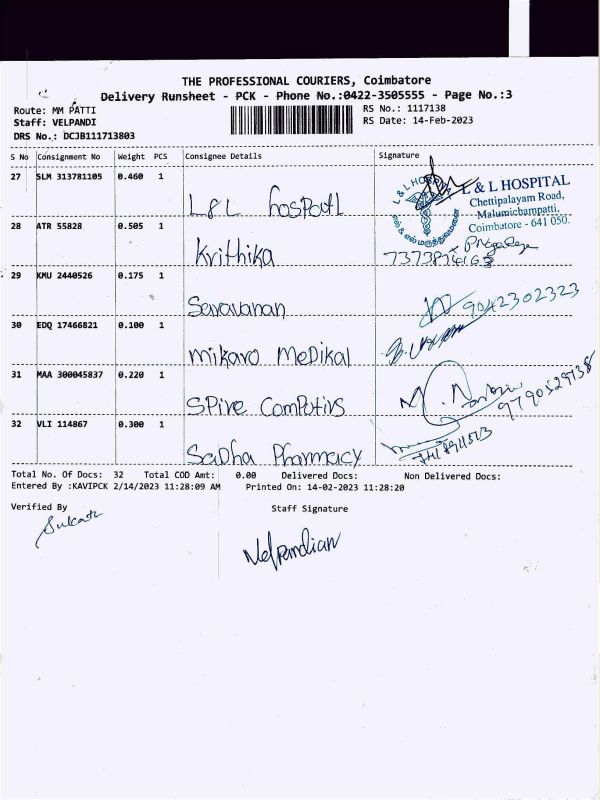 THE PROFESSIONAL COURIERS, Coimbatore
Delivery Runsheet - PCK - Phone No.:0422-3505555 - Page No.:3
Route: MM PATTI
RS No.: 1117138
Staff: VELPANDI
RS Date: 14-Feb-2023
DRS No.: DCJB111713803
S No Consignment No Weight PCS Consignee Details Signature
27 SLM 313781105 0.460 1 L&L hospoatl
L & L HOSPITAL
Chettipalayam Road,
Malumichampatti,
Coimbatore - 641 050.
28 ATR 55828 0.505 1 Krithika
29 KMU 2440526 0.175 1 Saravanan 9042302323
30 EDQ 17466821 0.100 1 mikaro Medikal
31 MAA 300045837 0.220 1 SPire Computivs 9790529738
32 VLI 114867 0.300 1 Sadha Pharmacy
Total No. Of Docs: 32 Total COD Amt: 0.00 Delivered Docs: Non Delivered Docs:
Entered By :KAVIPCK 2/14/2023 11:28:09 AM Printed On: 14-02-2023 11:28:20
Verified By Staff Signature
Velpandian